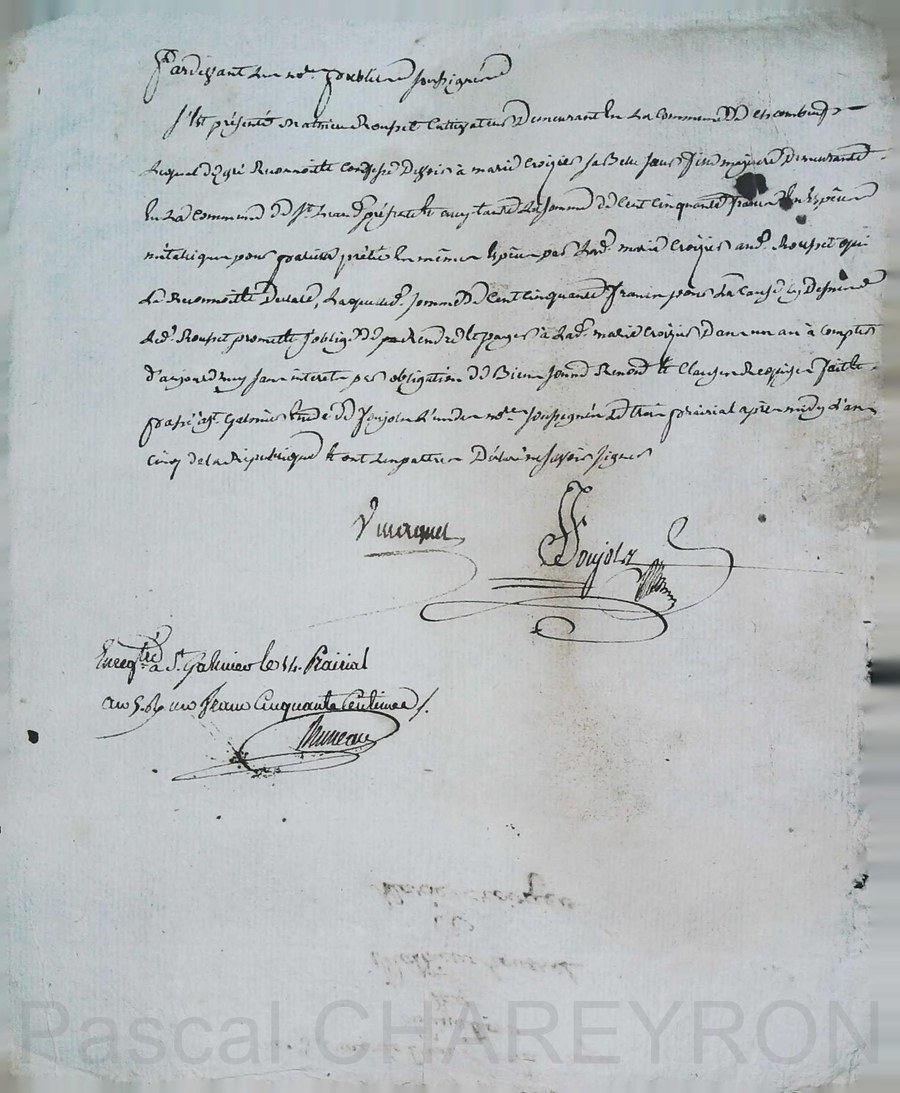 Pardevant le not.re public soussigné
S'est présenté Mathieu Rousset cultivateur demeurant en la commune d'
Lequel de gré Reconnoitt confesse devoir à marie croizier sa Belle Soeur fise majeure demeurante
En la commune de St. présente et acceptante La somme de cent cinquante francs En Espèces
métalique pour pareille prêtée En mêmes Espèces par Lad.e marie Croizier aud.t Rousset qui
Le Reconnoitt Declare, Laquelle d.e somme de cent cinquante francs pour La cause cy Dessus
Led.t Rousset promett s'oblige de rendre et payer à Lad.e marie Croizier Dans un an à compter
d'aujourd'huy sans interets par obligation de Biens soumis Renonc.t et Clauses Requises fait et
passé à St. Galmier Etude de Joujols L'un des not.res soussignés Le trois prairial après midy L'an
cinq de la République et ont Les parties Déclaré ne savoir signer
Joujols
Enreg.tré à St. Galmier le 14. Prairial
an 5. Rç un franc Cinquante Centimes /.
Marie croizier
Mathieu Rousset
Pascal CHAREYRON